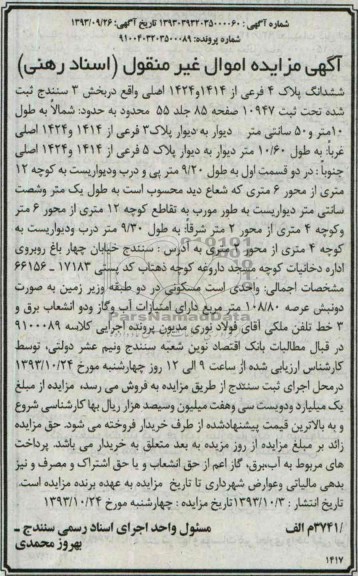 شماره آگهی : ۱۳۹۳۰۳۹۳۲۰۳۵۰۰۰۰۶۰ تاریخ آگهی: ۱۳۹۳/۰۹/۲۶
شماره پرونده: ۹۱۰۰۴۰۳۲۰۳۵۰۰۰۸۹
آگهی مزایده اموال غیر منقول (اسناد رهنی)
ششدانگ پلاک ۴ فرعی از ۱۴۱۴و۱۴۲۴ اصلی واقع دربخش ۳ سنندج ثبت
شده تحت ثبت ۱۰۹۴۷ صفحه ۸۵ جلد ۵۵ محدود به حدود: شمالاً به طول
۱۰متر و۵۰ سانتی متر دیوار به دیوار پلاک۳ فرعی از ۱۴۱۴ و۱۴۲۴ اصلی
غرباً: به طول ۱۰/۶۰ متر دیوار به دیوار پلاک ۵ فرعی از ۱۴۱۴ و۱۴۲۴ اصلی
جنوباً : در دو قسمت اول به طول ۹/۲۰ متر پی و درب ودیواریست به کوچه ۱۲
متری از محور ۶ متری که شعاع دید محسوب است به طول یک متر وشصت
سانتی متر دیواریست به طور مورب به تقاطع کوچه ۱۲ متری از محور ۶ متر
وکوچه ۴ متری از محور ۲ متر شرقاً: به طول ۹/۳۰ متر درب ودیواریست به
کوچه ۴ متری از محور ۲ متری به آدرس : سنندج خیابان چهار باغ روبروی
اداره دخانیات کوچه مسجد داروغه کوچه ذهتاب کد پستی ۱۷۱۸۳ _ ۶۶۱۵۶
مشخصات اجمالی: واحدی است مسکونی در دو طبقه وزیر زمین به صورت
دونبش عرصه ۱۰۸/۸۰ متر مربع دارای امتیازات آب وگاز ودو انشعاب برق و
۳ خط تلفن ملکی آقای فولاد نوری مدیون پرونده اجرایی کلاسه ۹۱۰۰۰۸۹
در قبال مطالبات بانک اقتصاد نوین شعبه سنندج ونیم عشر دولتی، توسط
کارشناس ارزیابی شده از ساعت ۹ الی ۱۲ روز چهارشنبه مورخ ۱۳۹۳/۱۰/۲۴
درمحل اجرای ثبت سنندج از طریق مزایده به فروش می رسد، مزایده از مبلغ
یک میلیارد ودویست سی وهفت میلیون وسیصد هزار ریال بها کارشناسی شروع
و به بالاترین قیمت پیشنهادشده از طرف خریدار فروخته می شود. حق مزایده
زائد بر مبلغ مزایده از روز مزیده به بعد متعلق به خریدار می باشد. پرداخت
های مربوط به آب،برق، گاز اعم از حق انشعاب و یا حق اشتراک و مصرف و نیز
بدهی مالیاتی وعوارض شهرداری تا تاریخ مزایده به عهده برنده مزایده است.
تاریخ انتشار : ۱۳۹۳/۱۰/۳تاریخ مزایده : چهارشنبه مورخ ۱۳۹۳/۱۰/۲۴
/۳۷۴۱م الف مسئول واحد اجرای اسناد رسمی سنندج ـ
بهروز محمدی
۱۴۱۷
ParsNamadData